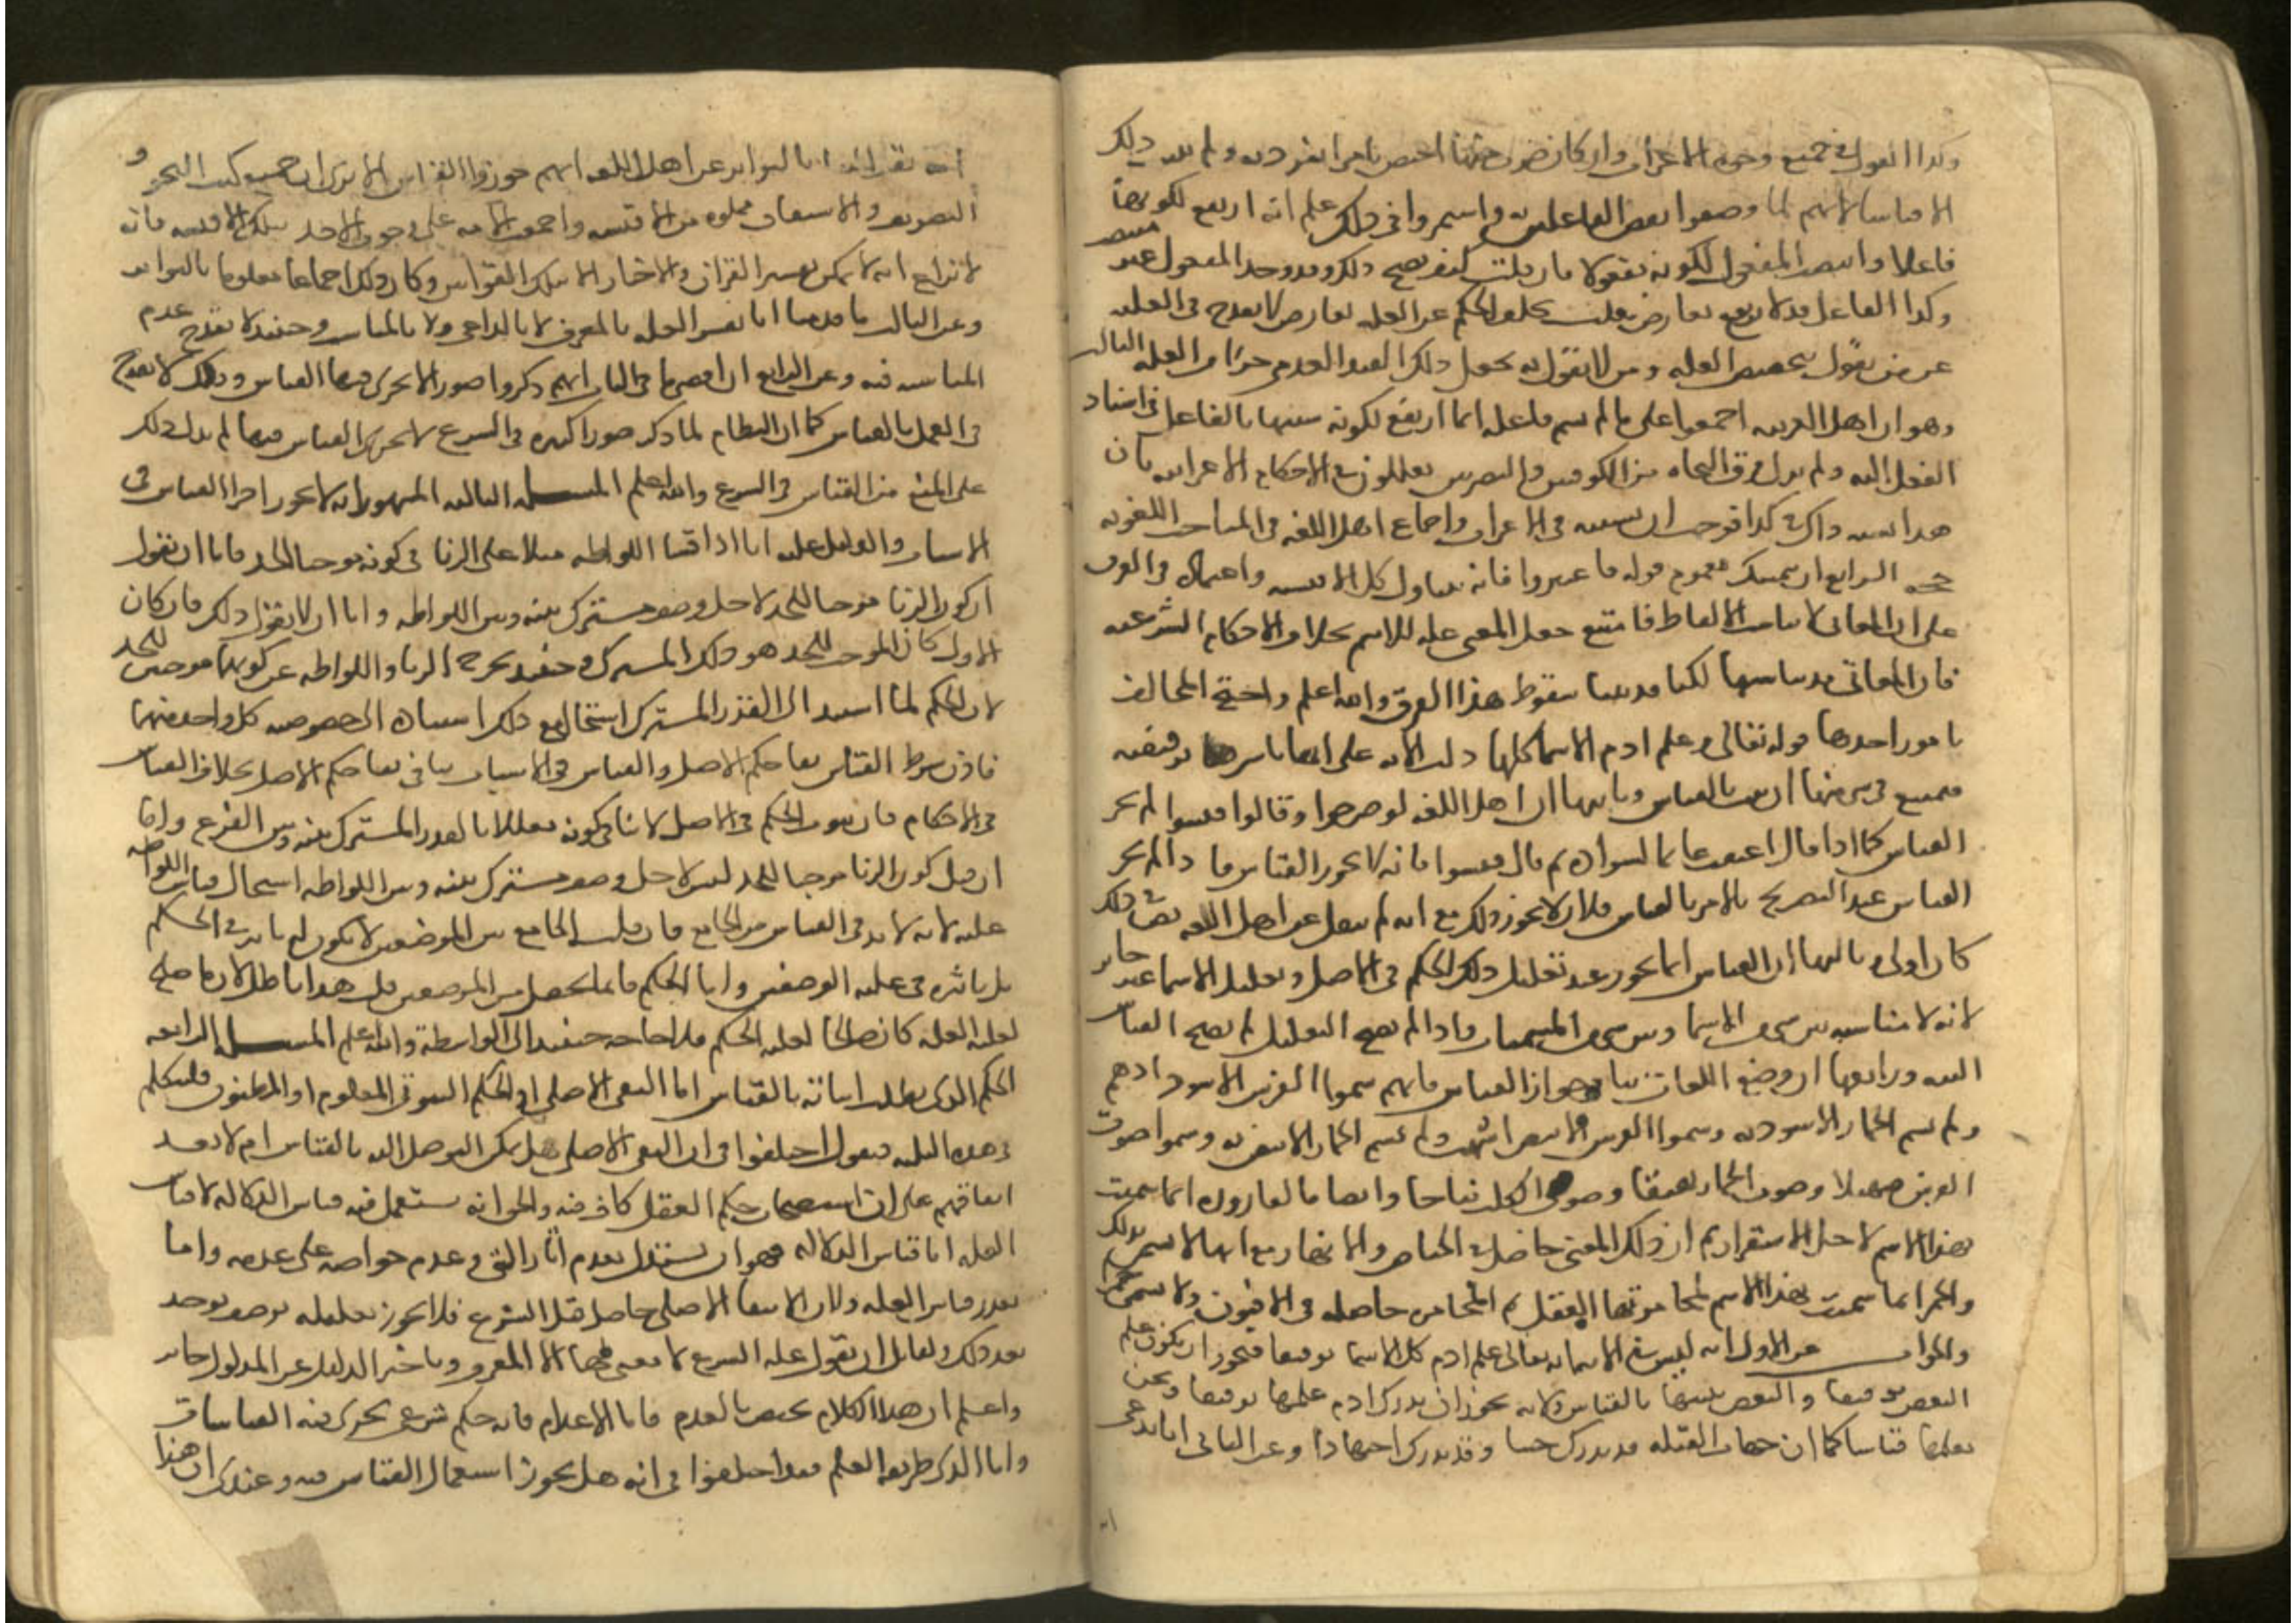 وكذا القول في جميع وجوه الاعراب وان كان ضرب منها اختص بامر انفرد به ولم يثبت ذلك
الا قياسا لانهم لما وصفوا بعض الفاعلين به واستمروا في ذلك علم انه ارتفع لكونها
فاعلا وانتصب المفعول لكونه مفعولا فان قلت كيف يصح ذلك وقد وجد المفعول غير منتصب
وكذا الفاعل قد لا يرتفع لعارض قلت تخلف الحكم عن العلة لعارض لا يقدح في العلية
عند من يقول بتخصيص العلة ومن لا يقول به يجعل ذلك القيد العدمي جزءا من العلة الثالث
وهو ان اهل العربية اجمعوا على ان ما لم يسم فاعله انما ارتفع لكونه شبيها بالفاعل في اسناد
الفعل اليه ولم يزل فرق النحاة من الكوفيين والبصريين يعللون في الاحكام الاعرابية بان
هذا يشبه ذاك في كذا فوجب ان يشبهه في الاعراب واجماع اهل اللغة في المباحث اللغوية
حجة الرابع ان يتمسك بعموم قوله فاعتبروا فانه يتناول كل الاقيسة واعتمادهم في الفرق
على ان المعاني لا تناسب الالفاظ فامتنع جعل المعنى علة للاسم بخلاف الاحكام الشرعية
فان المعاني قد تناسبها لكنا قد بينا سقوط هذا الفرق والله اعلم واحتج المخالف
بامور احدها قوله تعالى وعلم ادم الاسما كلها دلت الاية على انها باسرها توقيفية
فيمتنع في شي منها ان يثبت بالقياس وثانيها ان اهل اللغة لو صرحوا وقالوا قيسوا لم يجز
القياس كما اذا قال اعتقت غانما لسواده ثم قال قيسوا فانه لا يجوز القياس فاذا لم يجز
القياس عند التصريح بالامر بالقياس فلان لا يجوز ذلك مع انه لم ينقل عن اهل اللغة نص في ذلك
كان اولى وثالثها ان القياس انما يجوز عند تعليل ذلك الحكم في الاصل وتعليل الاسما غير جائز
لانه لا مناسبة بين شي من الاسما وبين شي من المسميات واذا لم يصح التعليل لم يصح القياس
البتة ورابعها ان وضع اللغات ينافي جواز القياس فانهم سموا الفرس الاسود ادهم
ولم يسم الحمار الاسود به وسموا الفرس الابيض اشهب ولم يسم الحمار الابيض به وسموا صوت
الفرس صهيلا وصوت الحمار نهيقا وصوت الكلب نباحا وايضا فالقارورة انما سميت
بهذا الاسم لاجل الاستقرار ثم ان ذلك المعنى حاصل في الحياض والانهار مع انها لا تسمى بذلك
والخمر انما سميت بهذا الاسم لمخامرتها العقل ثم المخامرة حاصلة في الافيون ولا يسمى خمرا
والجواب عن الاول انه ليس في الاية انه تعالى علم ادم كل الاسما توقيفا فيجوز ان يكون علم
البعض توقيفا والبعض تنبيها بالقياس ولانه يجوز ان يدرك ادم علمها توقيفا ونحن
نعلمها قياسا كما ان جهات القبلة قد تدرك حسا وقد تدرك اجتهادا وعن الثاني انا ندعي
انه نقل الينا بالتواتر عن اهل اللغة انهم جوزوا القياس الا ترى ان جميع كتب النحو و
التصريف والاشتقاق مملوة من الاقيسة واجمعت الامة على وجوب الاخذ بتلك الاقيسة فانه
لا نزاع انه لا يمكن تفسير القران والاخبار الا بتلك القوانين وكان ذلك اجماعا معلوما بالتواتر
وعن الثالث ما قدمنا انا نفسر العلة بالمعرف لا بالداعي ولا بالمناسب وحينئذ لا يقدح عدم
المناسبة فيه وعن الرابع ان اقصى ما في الباب انهم ذكروا صورا لا يجري فيها القياس وذلك لا يقدح
في العمل بالقياس كما ان النظام لما ذكر صورا كثيرة في الشرع لا يجري القياس فيها لم يدل ذلك
على المنع من القياس في الشرع والله اعلم المسلة الثالثة المشهور انه لا يجوز اجرا القياس في
الاسباب والدليل عليه انا اذا قسنا اللواطة مثلا على الزنا في كونه موجبا للحد فاما ان نقول
ان كون الزنا موجبا للحد لاجل وصف مشترك بينه وبين اللواطة واما ان لا نقول ذلك فان كان
الاول كان الموجب للحد هو ذلك المشترك وحينئذ يخرج الزنا واللواطة عن كونهما موجبين للحد
لان الحكم لما استند الى القدر المشترك استحال مع ذلك استناده الى خصوصية كل واحد منهما
فاذن شرط القياس بقا حكم الاصل والقياس في الاسباب ينافي بقا حكم الاصل بخلاف القياس
في الاحكام فان ثبوت الحكم في الاصل لا ينافي كونه معللا بالقدر المشترك بينه وبين الفرع واما
ان قيل كون الزنا موجبا للحد ليس لاجل وصف مشترك بينه وبين اللواطة استحال قياس اللواطة
عليه لانه لا بد في القياس من الجامع فان قلت الجامع بين الموضعين لا يكون له تاثير في الحكم
بل تاثيره في علية الوصفين واما الحكم فانما يحصل من الوصفين قلت هذا باطل لان ما صلح
لعلية العلة كان صالحا لعلية الحكم فلا حاجة حينئذ الى الواسطة والله اعلم المسلة الرابعة
الحكم الذي يطلب اثباته بالقياس اما النفي الاصلي او الحكم الثبوتي المعلوم او المظنون فلنتكلم
في هذه الثلثة فنقول اختلفوا في ان النفي الاصلي هل يمكن التوصل اليه بالقياس ام لا بعد
اتفاقهم على ان استصحاب حكم العقل كاف فيه والحق انه يستعمل فيه قياس الدلالة لا قياس
العلة اما قياس الدلالة فهو ان يستدل بعدم اثار الشي وعدم خواصه على عدمه واما
تعذر قياس العلة فلان الانتفا الاصلي حاصل قبل الشرع فلا يجوز تعليله بوصف يوجد
بعد ذلك ولقائل ان يقول علة الشرع لا معنى لها الا المعرف وتاخير الدليل عن المدلول جائز
واعلم ان هذا الكلام يختص بالعدم فاما الاعدام فانه حكم شرعي يجري فيه القياسات
واما الذي طريقه العلم فقد اختلفوا في انه هل يجوز استعمال القياس فيه وعندي ان هذا